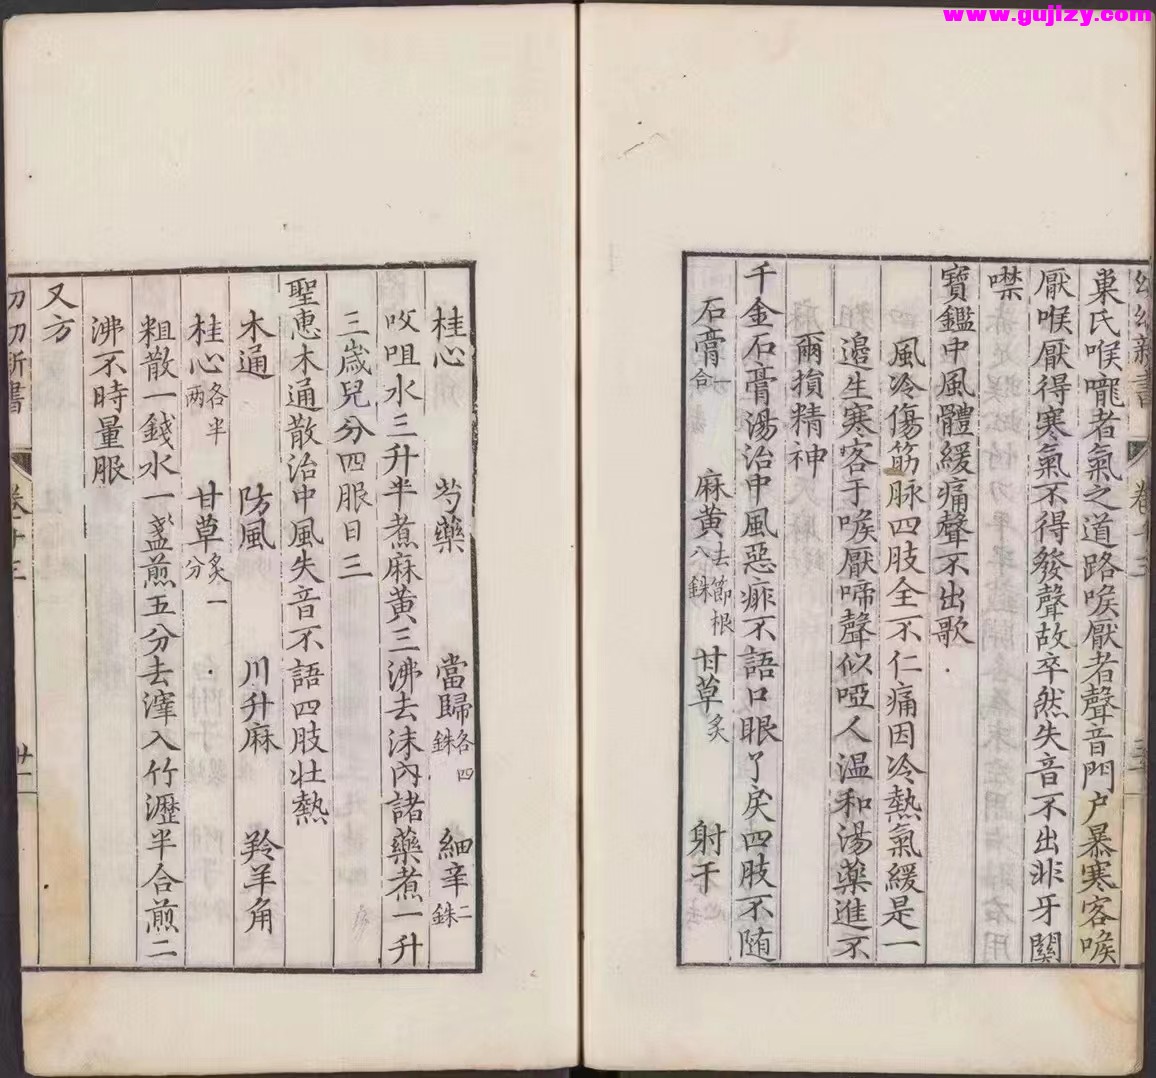 www.gujizy.com
幼幼新書 卷十三
巢氏喉嚨者氣之道路喉厭者聲音門户暴寒客喉
厭喉厭得寒氣不得發聲故卒然失音不出非牙關
噤
寶鑑中風體緩痛聲不出歌
風冷傷筋脉四肢全不仁痛因冷熱氣緩是一
邊生寒客于喉厭啼聲似啞人温和湯藥進不
爾損精神
千金石膏湯治中風惡痱不語口眼了戾四肢不随
石膏合 麻黄去節根八銖 甘草炙 射干
桂心 芍藥 當歸各四銖 細辛二銖
㕮咀水三升半煮麻黄三沸去沫内諸藥煮一升
三歲兒分四服日三
聖惠木通散治中風失音不語四肢壮熱
木通 防風 川升麻 羚羊角
桂心各半两 甘草炙一分
粗散一錢水一盞煎五分去滓入竹瀝半合煎二
沸不時量服
又方
幼幼新書 卷十三 廿一